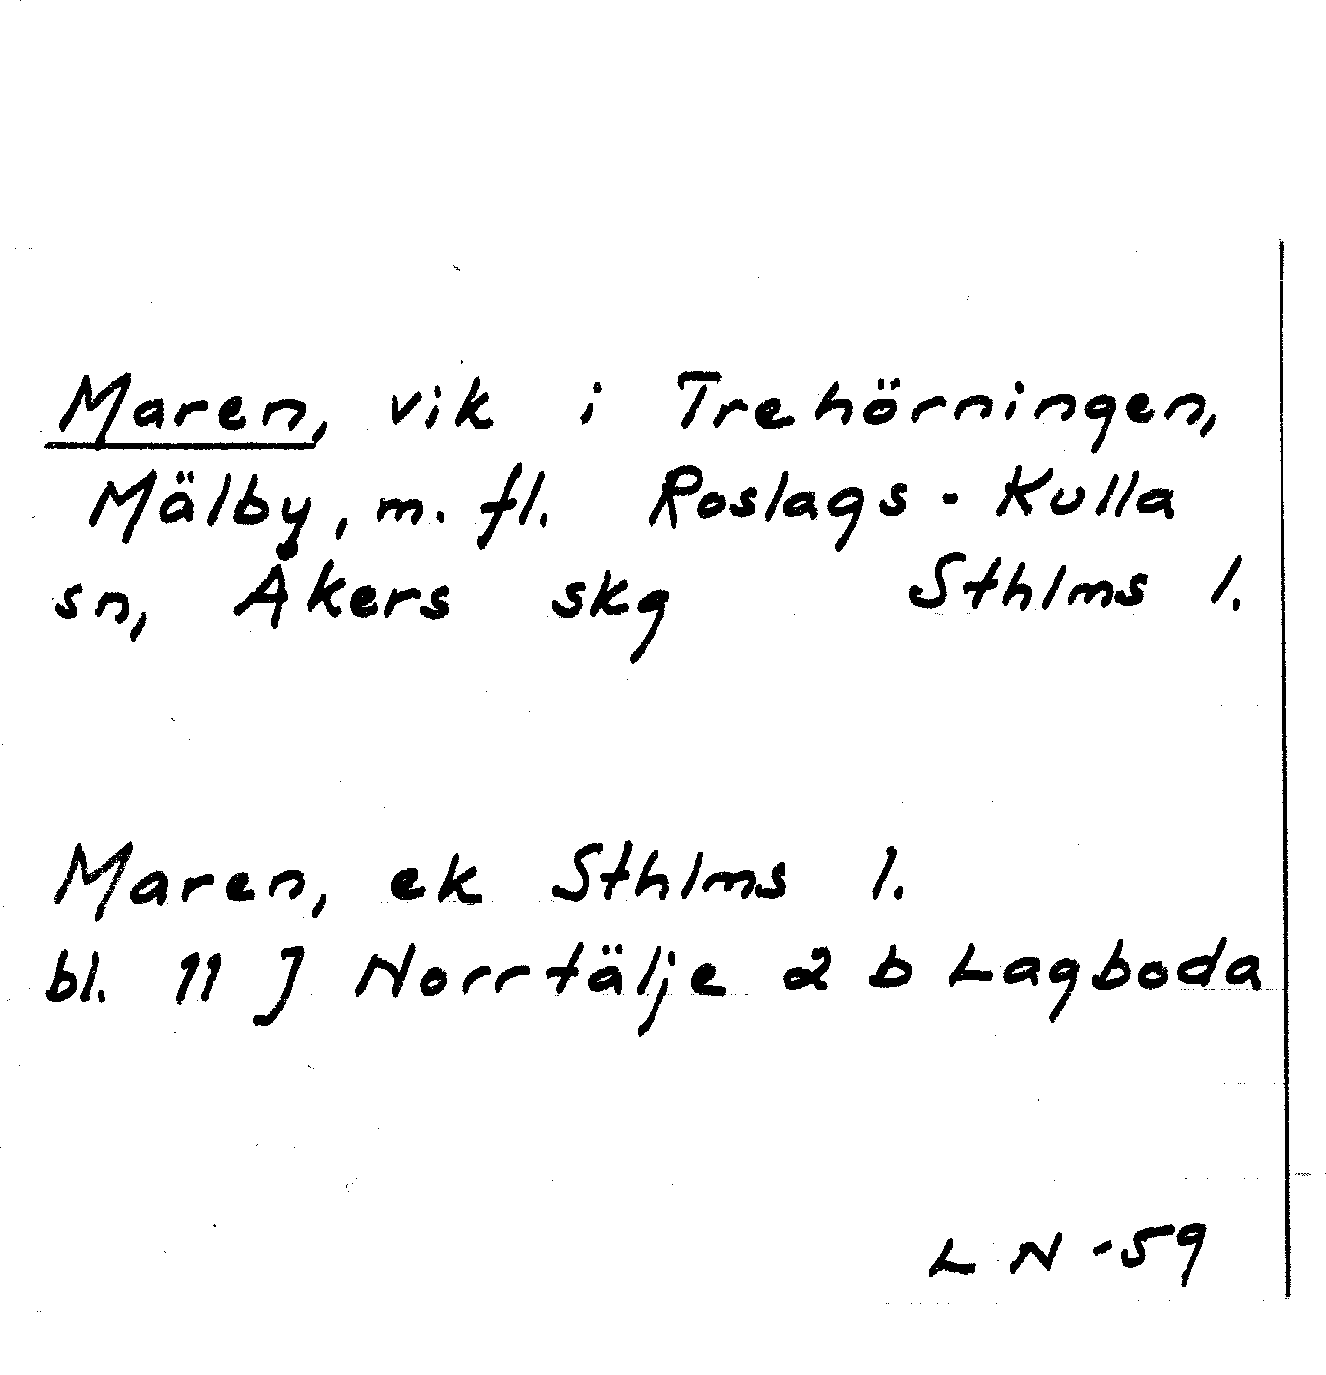 Maren, vik i Trehörningen,
Mälby, m. fl. Roslags-Kulla
sn, Åkers skg Sthlms l.
Maren, ek Sthlms l.
bl. 11 J Norrtälje 2 b Lagboda
LN -59